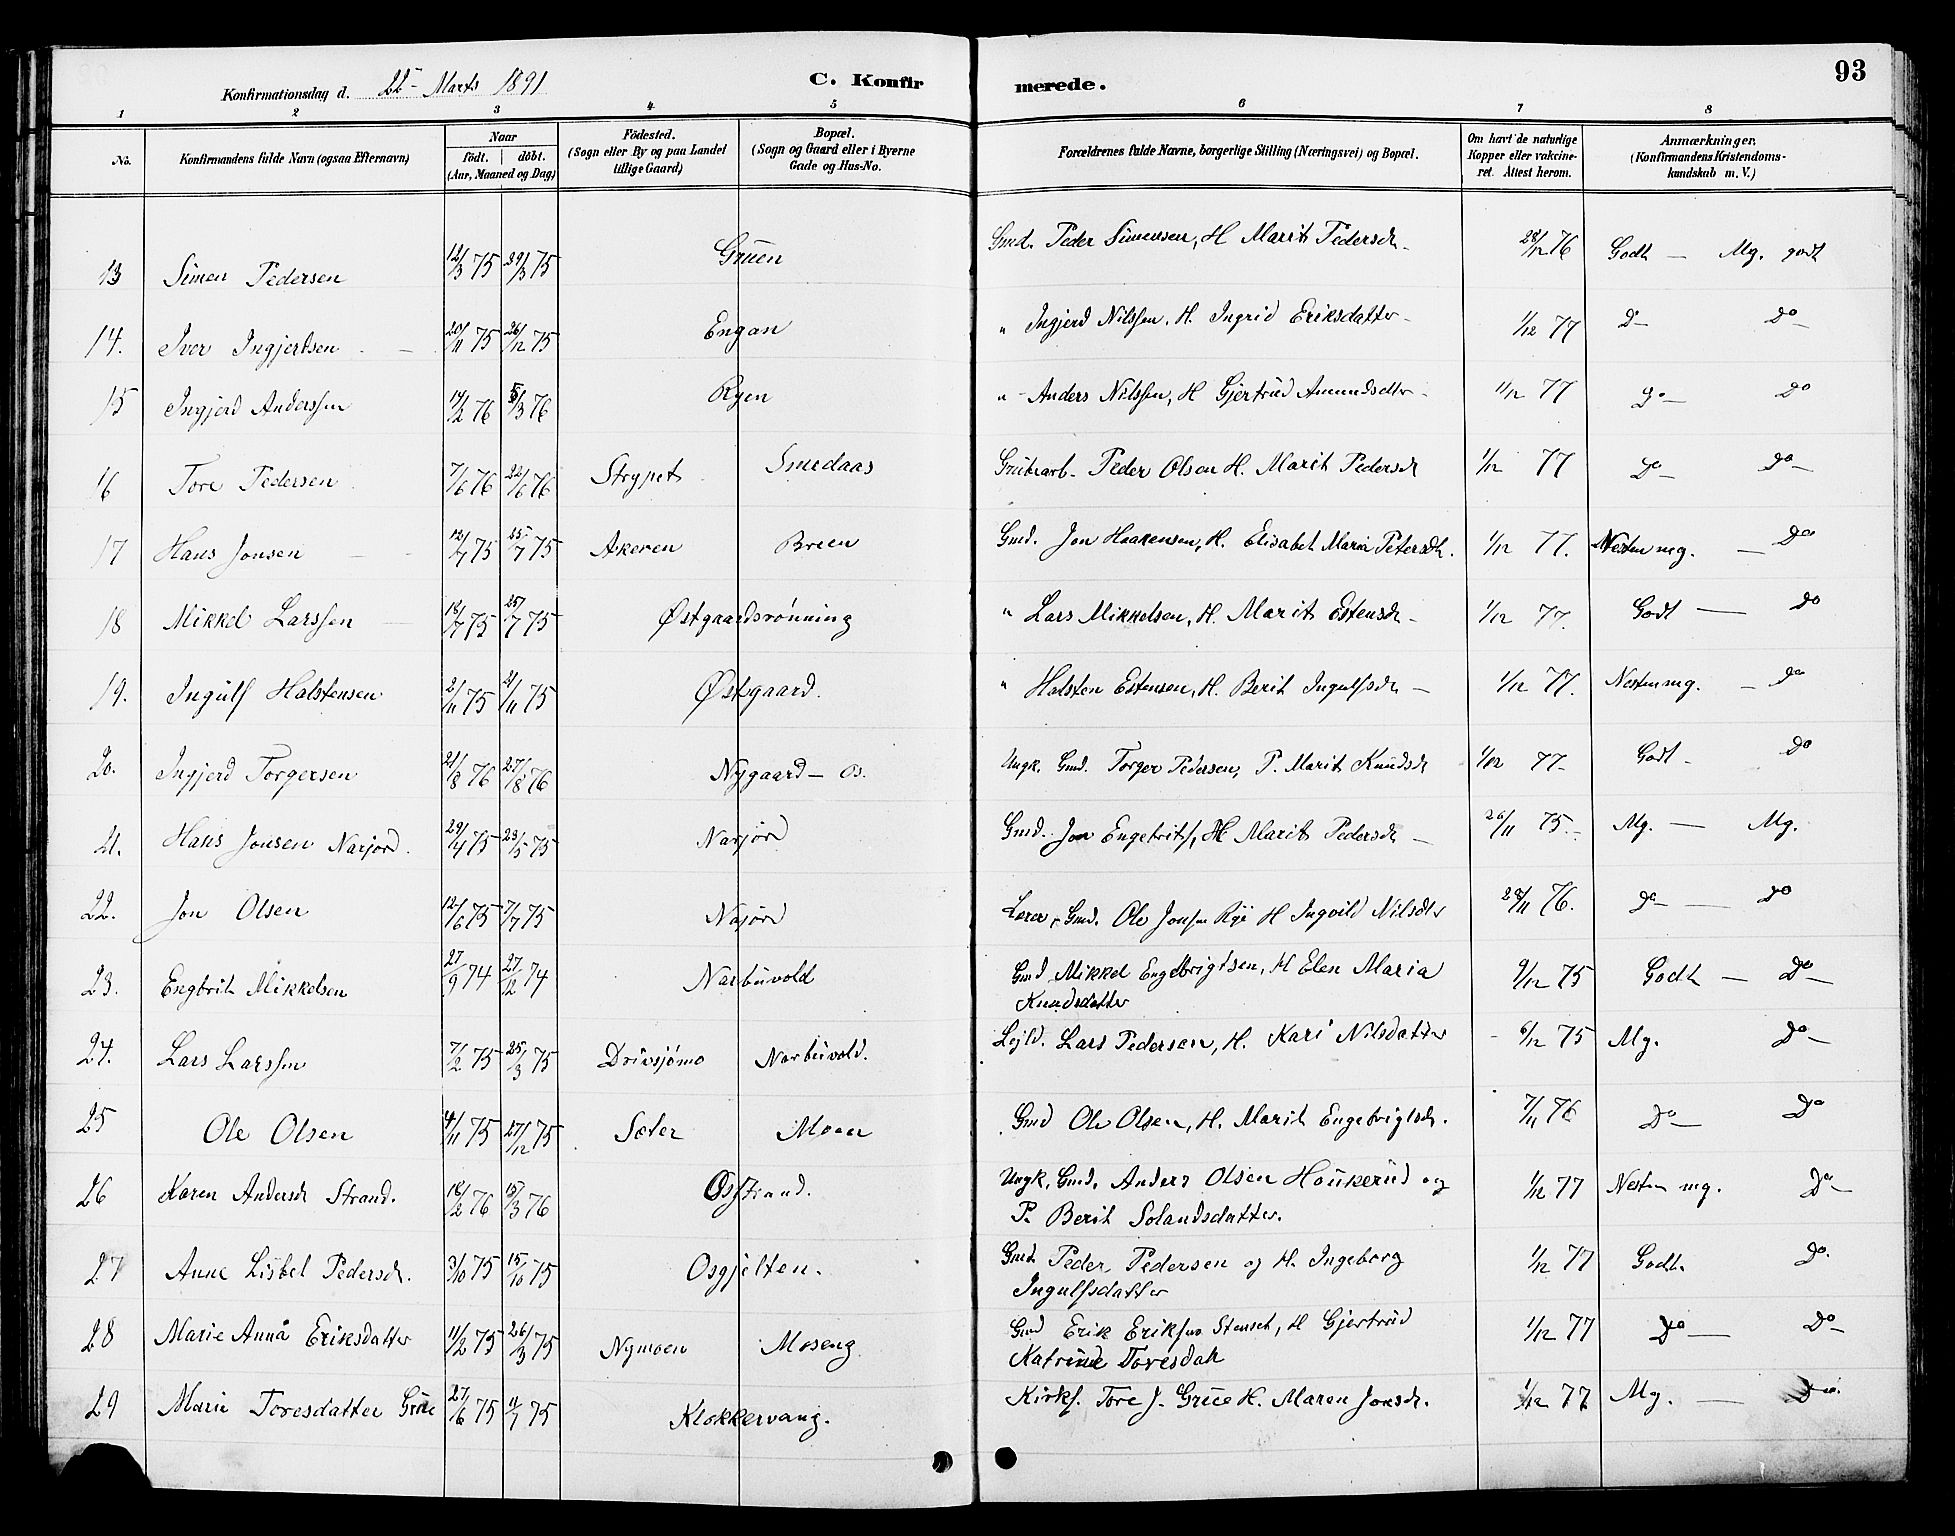 93
Konfirmationsdag d. 22 Marts 1891 C. Konfirmerede.
1 2 3 4 5 6 7 8
No. Konfirmandens fulde Navn (ogsaa Efternavn) Naar født. döbt. (Aar, Maaned og Dag) Födested. (Sogn eller By og paa Landet tillige Gaard) Bopæl. (Sogn og Gaard eller i Byerne Gade og Hus-No. Forældrenes fulde Navne, borgerlige Stilling (Næringsvei) og Bopæl. Om havt de naturlige Kopper eller vakcineret. Attest herom. Anmærkninger. (Konfirmandens Kristendomskundskab m. V.)
13 Simen Pedersen 12/3 75 29/3 75 Gruen Gmd. Peder Simensen, H Marit Pedersdr 28/12 76 Godt — Mg. godt
14. Iver Ingjerdsen 20/11 75 26/12 75 Engan " Ingjerd Nilssen, H. Ingrid Eriksdatter 1/12 77 Do Do
15 Ingjerd Anderssen 14/2 76 5/3 76 Ryen " Anders Nilssen, H Gjertrud Amundsdtr 11/12 77 Do Do
16 Tore Pedersen 7/6 76 22/6 76 Strypet Smedaas Grubearb. Peder Olsen H. Marit Pedersdr 1/12 77 Do Do
17 Hans Jonsen 12/7 75 25/7 75 Akeren Breen Gmd. Jon Haakensen, H. Elisabet Maria Petersdtr. 1/12 77. Nesten mg. — Do
18 Mikkel Larssen 18/7 75 25/7 75 Østgaardsrønning " Lars Mikkelsen, H. Marit Estensdr 1/12 77. Godt — Do
19. Ingulf Halstensen 2/11 75 21/11 75 Østgaard. " Halsten Estensen, H. Berit Ingulfsdr 1/12 77. Nesten mg. — Do
20. Ingjerd Torgersen 21/8 76 27/8 76 Nygaard — Os. Ungk. Gmd. Torger Pedersen, P. Marit Knudsdr 1/12 77 Godt Do
21. Hans Jonsen Narjord. 29/4 75 23/5 75 Narjord Gmd. Jon Engebrits, H Marit Pedersdr 26/11 75 Mg. — Mg.
22. Jon Olsen 12/6 75 7/7 75 Najord Lærer, Gmd. Ole Jonsen Rye H Ingvild Nilsdtr 28/11 76. Do — Do
23. Engbrit Mikkelsen 27/9 74 27/12 74 Narbuvold Gmd Mikkel Engebrigtsen, H Elen Maria 9/12 75 Godt — Do
Knudsdatter
24. Lars Larssen 7/2 75 25/3 75 Drivsjømo Narbuvold. Lejld. Lars Pedersen, H. Kari Nilsdatter 6/12 75 Mg. Do
25 Ole Olsen 4/11 75 27/12 75 Sæter Moen Gmd Ole Olsen, H. Marit Engebrigtsdr. 7/11 76 Do Do
26 Karen Andersdr Strand. 18/2 76 15/3 76 Osstrand. Ungk. Gmd. Anders Olsen Houkerud og 1/12 77 Nesten mg. Do
P. Berit Solandsdatter.
27 Anne Lisbet Pedersdr. 3/10 75 15/10 75 Osgjelten. Gmd. Peder Pedersen og H. Ingeborg 1/12 77 Godt. Do.
Ingulfsdatter
28 Marie Anna Eriksdatter 11/2 75 26/3 75 Nymoen Moseng Gmd Erik Eriksen Stenset, H Gjertrud 1/12 77 Do — Do
Katrine Toresdatr
29 Marie Toresdatter Grue 27/6 75 11/7 75 Klokkervang. Kirks. Tore J. Grue H. Maren Jonsdr. 1/12 77 Mg. — Do.